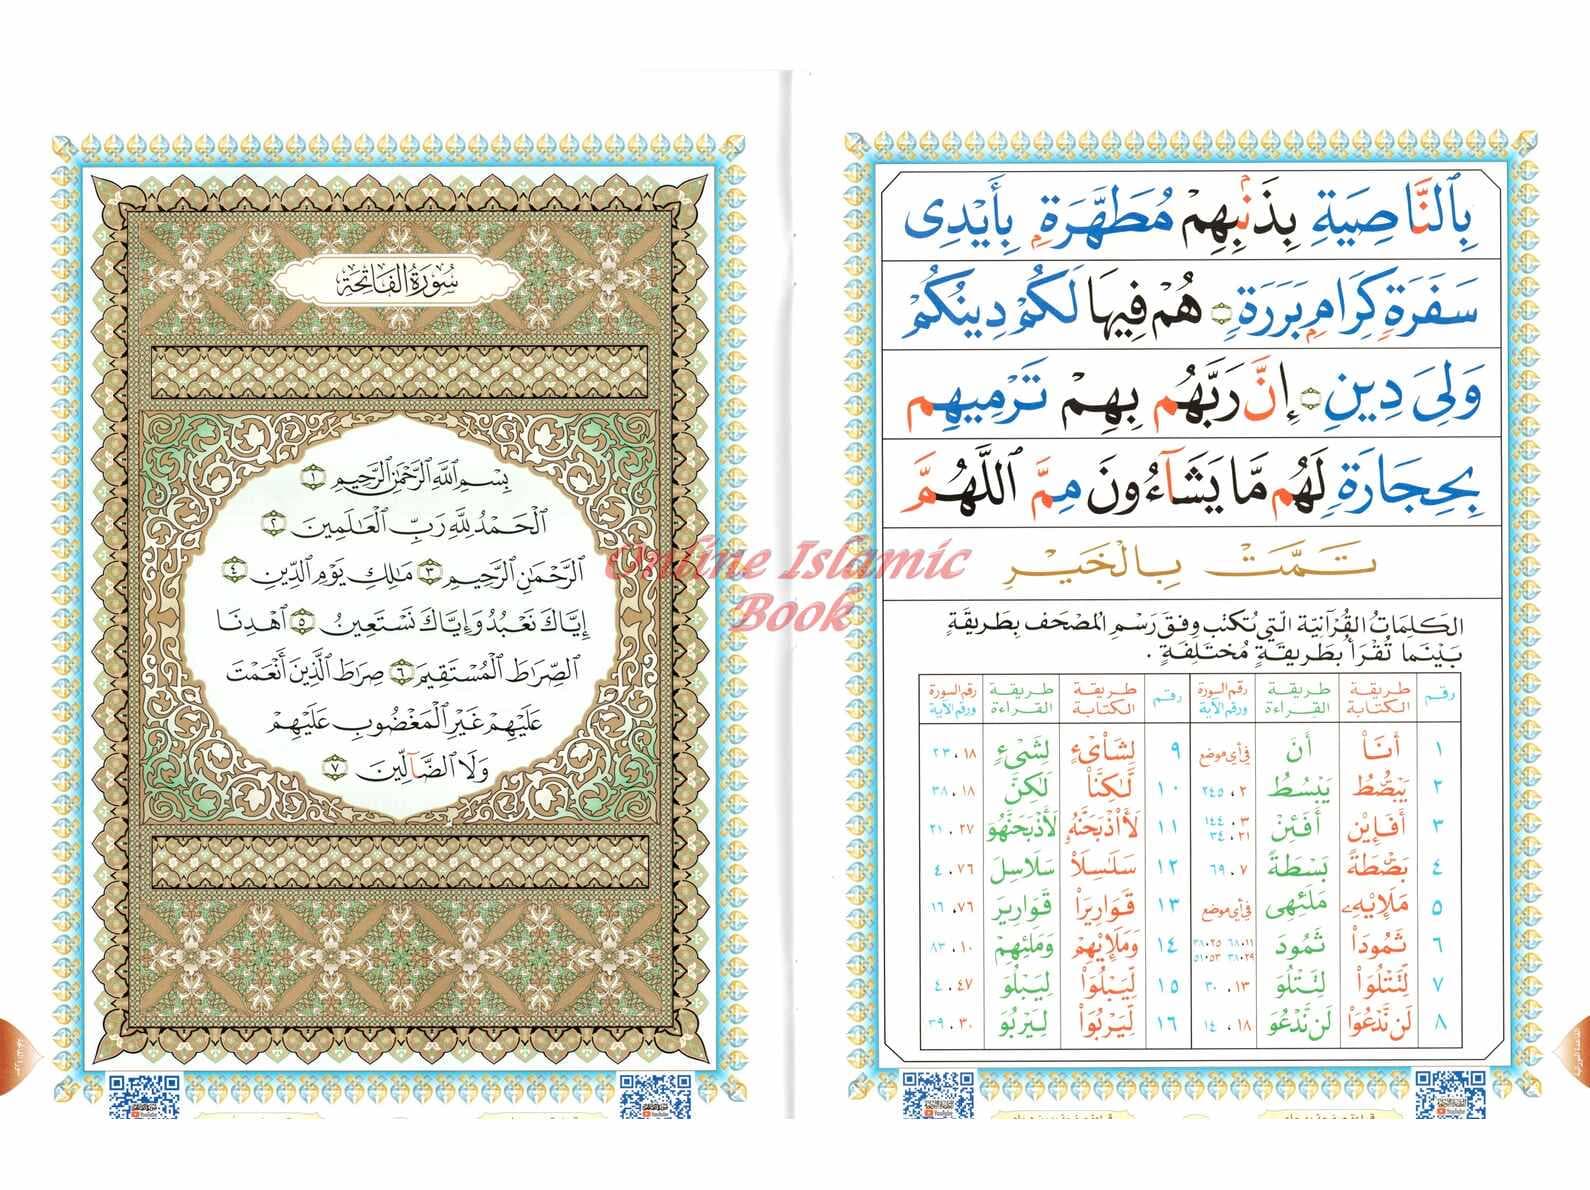 بِالنَّاصِيَةِ بِذَنۢبِهِمْ مُطَهَّرَةٍۭ بِأَيْدِى
سَفَرَةٍ كِرَامٍۭ بَرَرَةٍ هُمْ فِيهَا لَكُمْ دِينُكُمْ
وَلِىَ دِينِ إِنَّ رَبَّهُم بِهِمْ تَرْمِيهِم
بِحِجَارَةٍ لَهُم مَّا يَشَآءُونَ مِمَّ ٱللَّهُمَّ
تَمَّتْ بِالْخَيْرِ
الكَلِمَاتُ القُرْآنِيَّة الَّتِي تُكْتَب وِفْق رَسْمِ المُصْحَف بِطَرِيقَةٍ
بَيْنَمَا تُقْرَأُ بِطَرِيقَةٍ مُخْتَلِفَةٍ .
رقم طريقة الكتابة طريقة القراءة رقم السورة ورقم الآية رقم طريقة الكتابة طريقة القراءة رقم السورة ورقم الآية
١ أَنَا۠ أَنَ في أي موضع ٩ لِشَا۟ىْءٍ لِشَىْءٍ ١٨ ، ٢٣
٢ يَبْصُۜطُ يَبْسُطُ ٢ ، ٢٤٥ ١٠ لَّٰكِنَّا۠ لَٰكِنَّ ١٨ ، ٣٨
٣ أَفَإِي۟ن أَفَئِنْ ٣ ، ١٤٤ ٢١ ، ٣٤ ١١ لَأَا۟ذْبَحَنَّهُۥ لَأَذْبَحَنَّهُو ٢٧ ، ٢١
٤ بَصْۜطَةً بَسْطَةً ٧ ، ٦٩ ١٢ سَلَٰسِلَا۟ سَلَاسِلَ ٧٦ ، ٤
٥ مَلَإِي۟هِۦ مَلَئِهِى في أي موضع ١٣ قَوَارِيرَا۟ قَوَارِيرَ ٧٦ ، ١٦
٦ ثَمُودَا۟ ثَمُودَ ١١ ، ٦٨ ٢٥ ، ٣٨ ٢٩ ، ٣٨ ٥٣ ، ٥١ ١٤ وَمَلَإِي۟هِمْ وَمَلَئِهِمْ ١٠ ، ٨٣
٧ لِّتَتْلُوَا۟ لِتَتْلُوَ ١٣ ، ٣٠ ١٥ لِّيَبْلُوَا۟ لِيَبْلُوَ ٤٧ ، ٤
٨ لَن نَّدْعُوَا۟ لَن نَّدْعُوَ ١٨ ، ١٤ ١٦ لِّيَرْبُوَا۟ لِيَرْبُوَ ٣٠ ، ٣٩
سُورَةُ الفَاتِحَةِ
بِسْمِ ٱللَّهِ ٱلرَّحْمَٰنِ ٱلرَّحِيمِ ١
ٱلْحَمْدُ لِلَّهِ رَبِّ ٱلْعَٰلَمِينَ ٢
ٱلرَّحْمَٰنِ ٱلرَّحِيمِ ٣ مَٰلِكِ يَوْمِ ٱلدِّينِ ٤
إِيَّاكَ نَعْبُدُ وَإِيَّاكَ نَسْتَعِينُ ٥ ٱهْدِنَا
ٱلصِّرَٰطَ ٱلْمُسْتَقِيمَ ٦ صِرَٰطَ ٱلَّذِينَ أَنْعَمْتَ
عَلَيْهِمْ غَيْرِ ٱلْمَغْضُوبِ عَلَيْهِمْ
وَلَا ٱلضَّآلِّينَ ٧
Online Islamic
Book
YouTube
YouTube
YouTube
YouTube